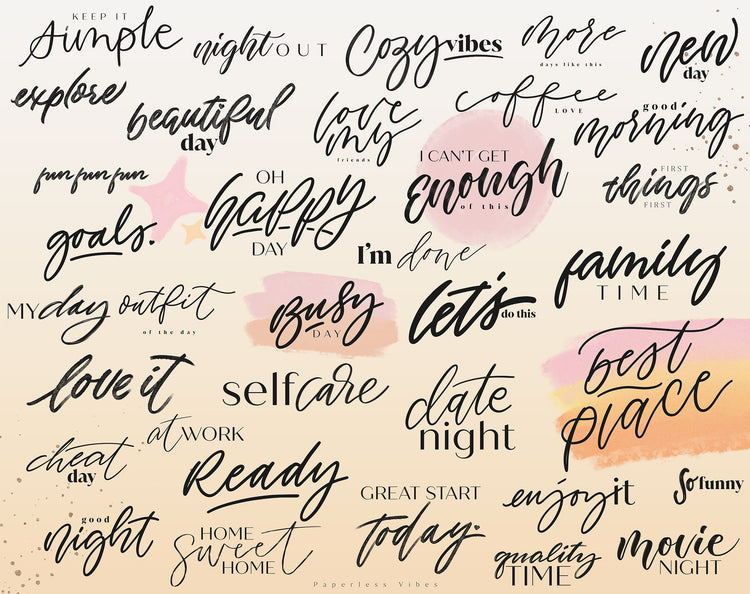 KEEP IT
simple
night OUT
Cozy vibes
more
days like this
new
day
explore
beautiful
day
love
my
friends
coffee
LOVE
good
morning
fun fun fun
OH
happy
DAY
I CAN'T GET
Enough
of this
FIRST
things
FIRST
goals.
I'm done
family
TIME
MY day
outfit
of the day
Busy
DAY
let's do this
best
place
love it
selfcare
date
night
cheat
day
at WORK
Ready
GREAT START
today.
enjoy it
So funny
good
night
HOME
sweet
HOME
quality
TIME
movie
NIGHT
Paperless Vibes